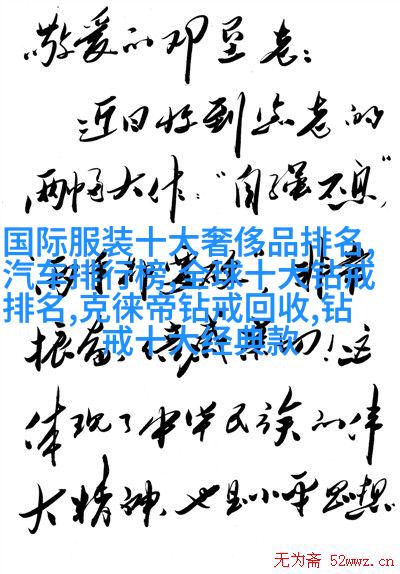 敬爱的邓垦老：
近日收到您老的
两幅大作：“自强不息”，
国际服装十大奢侈品排名,
汽车排行榜,全球十大钻戒
排名,克徕帝钻戒回收,钻
戒十大经典款
振奋，倍感亲切！这
体现了中华民族的伟
大精神，也是小平思想
无为斋 52wwz.cn